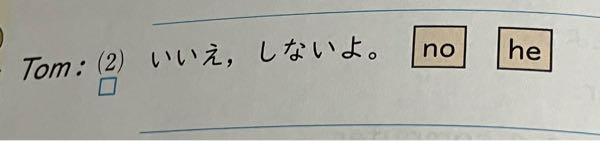 Tom: (2) いいえ，しないよ。 no he